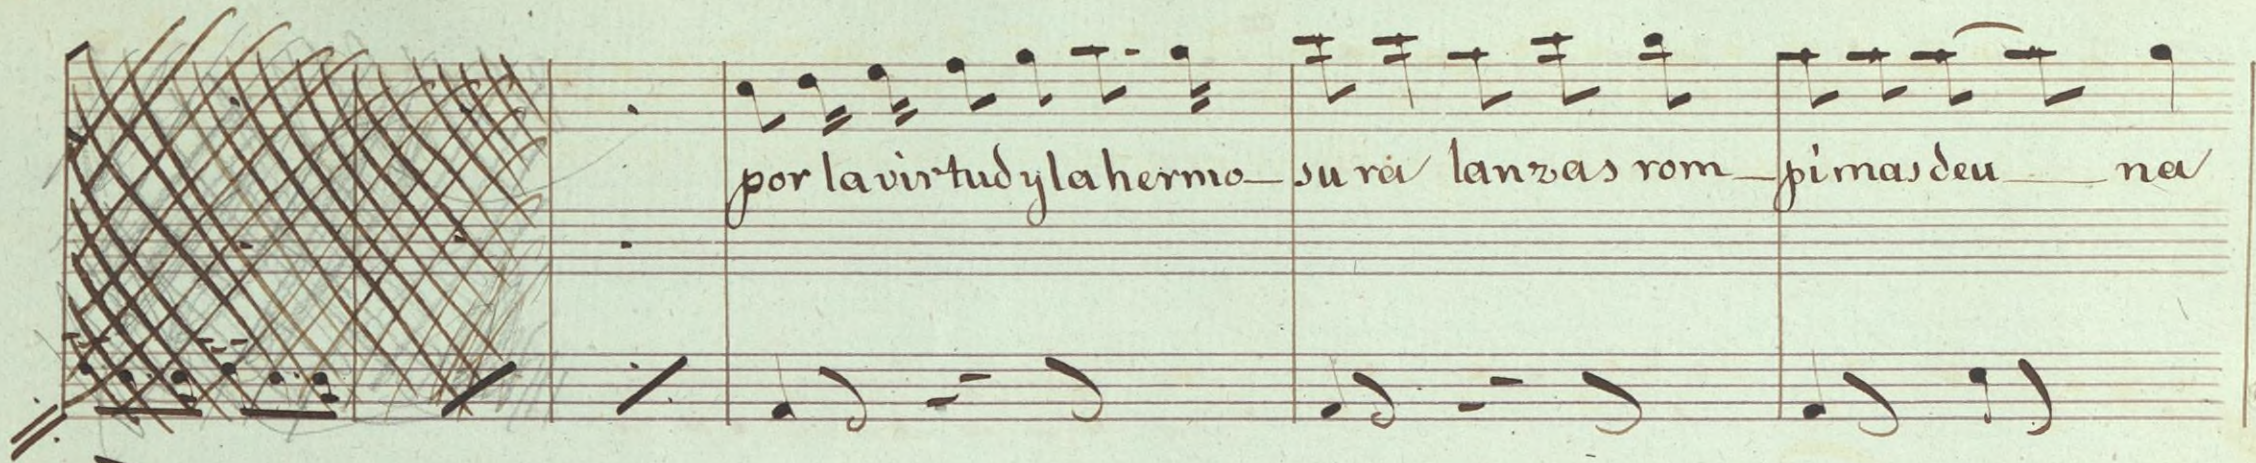 por la virtud y la hermo_su ra lanzas rom_pi mas de u__na